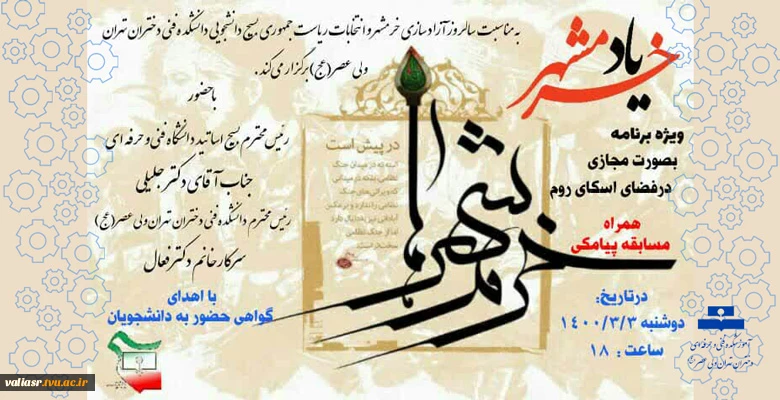 یاد خرمشهر
به مناسبت سالروز آزادسازی خرمشهر و انتخابات ریاست جمهوری بسیج دانشجویی دانشکده فنی دختران تهران
ولی عصر(عج) برگزار می کند.
باحضور
رئیس محترم بسیج اساتید دانشگاه فنی و حرفه ای
جناب آقای دکتر جلیلی
رئیس محترم دانشکده فنی دختران تهران ولی عصر(عج)
سرکار خانم دکتر فعال
با اهدای
گواهی حضور به دانشجویان
ویژه برنامه
بصورت مجازی
درفضای اسکای روم
همراه
مسابقه پیامکی
درتاریخ:
دوشنبه ۱۴۰۰/۳/۳
ساعت : ۱۸
خرمشهرها
در پیش است
آموزشکده فنی و حرفه ای
دختران تهران ولی عصر
valiasr.tvu.ac.ir